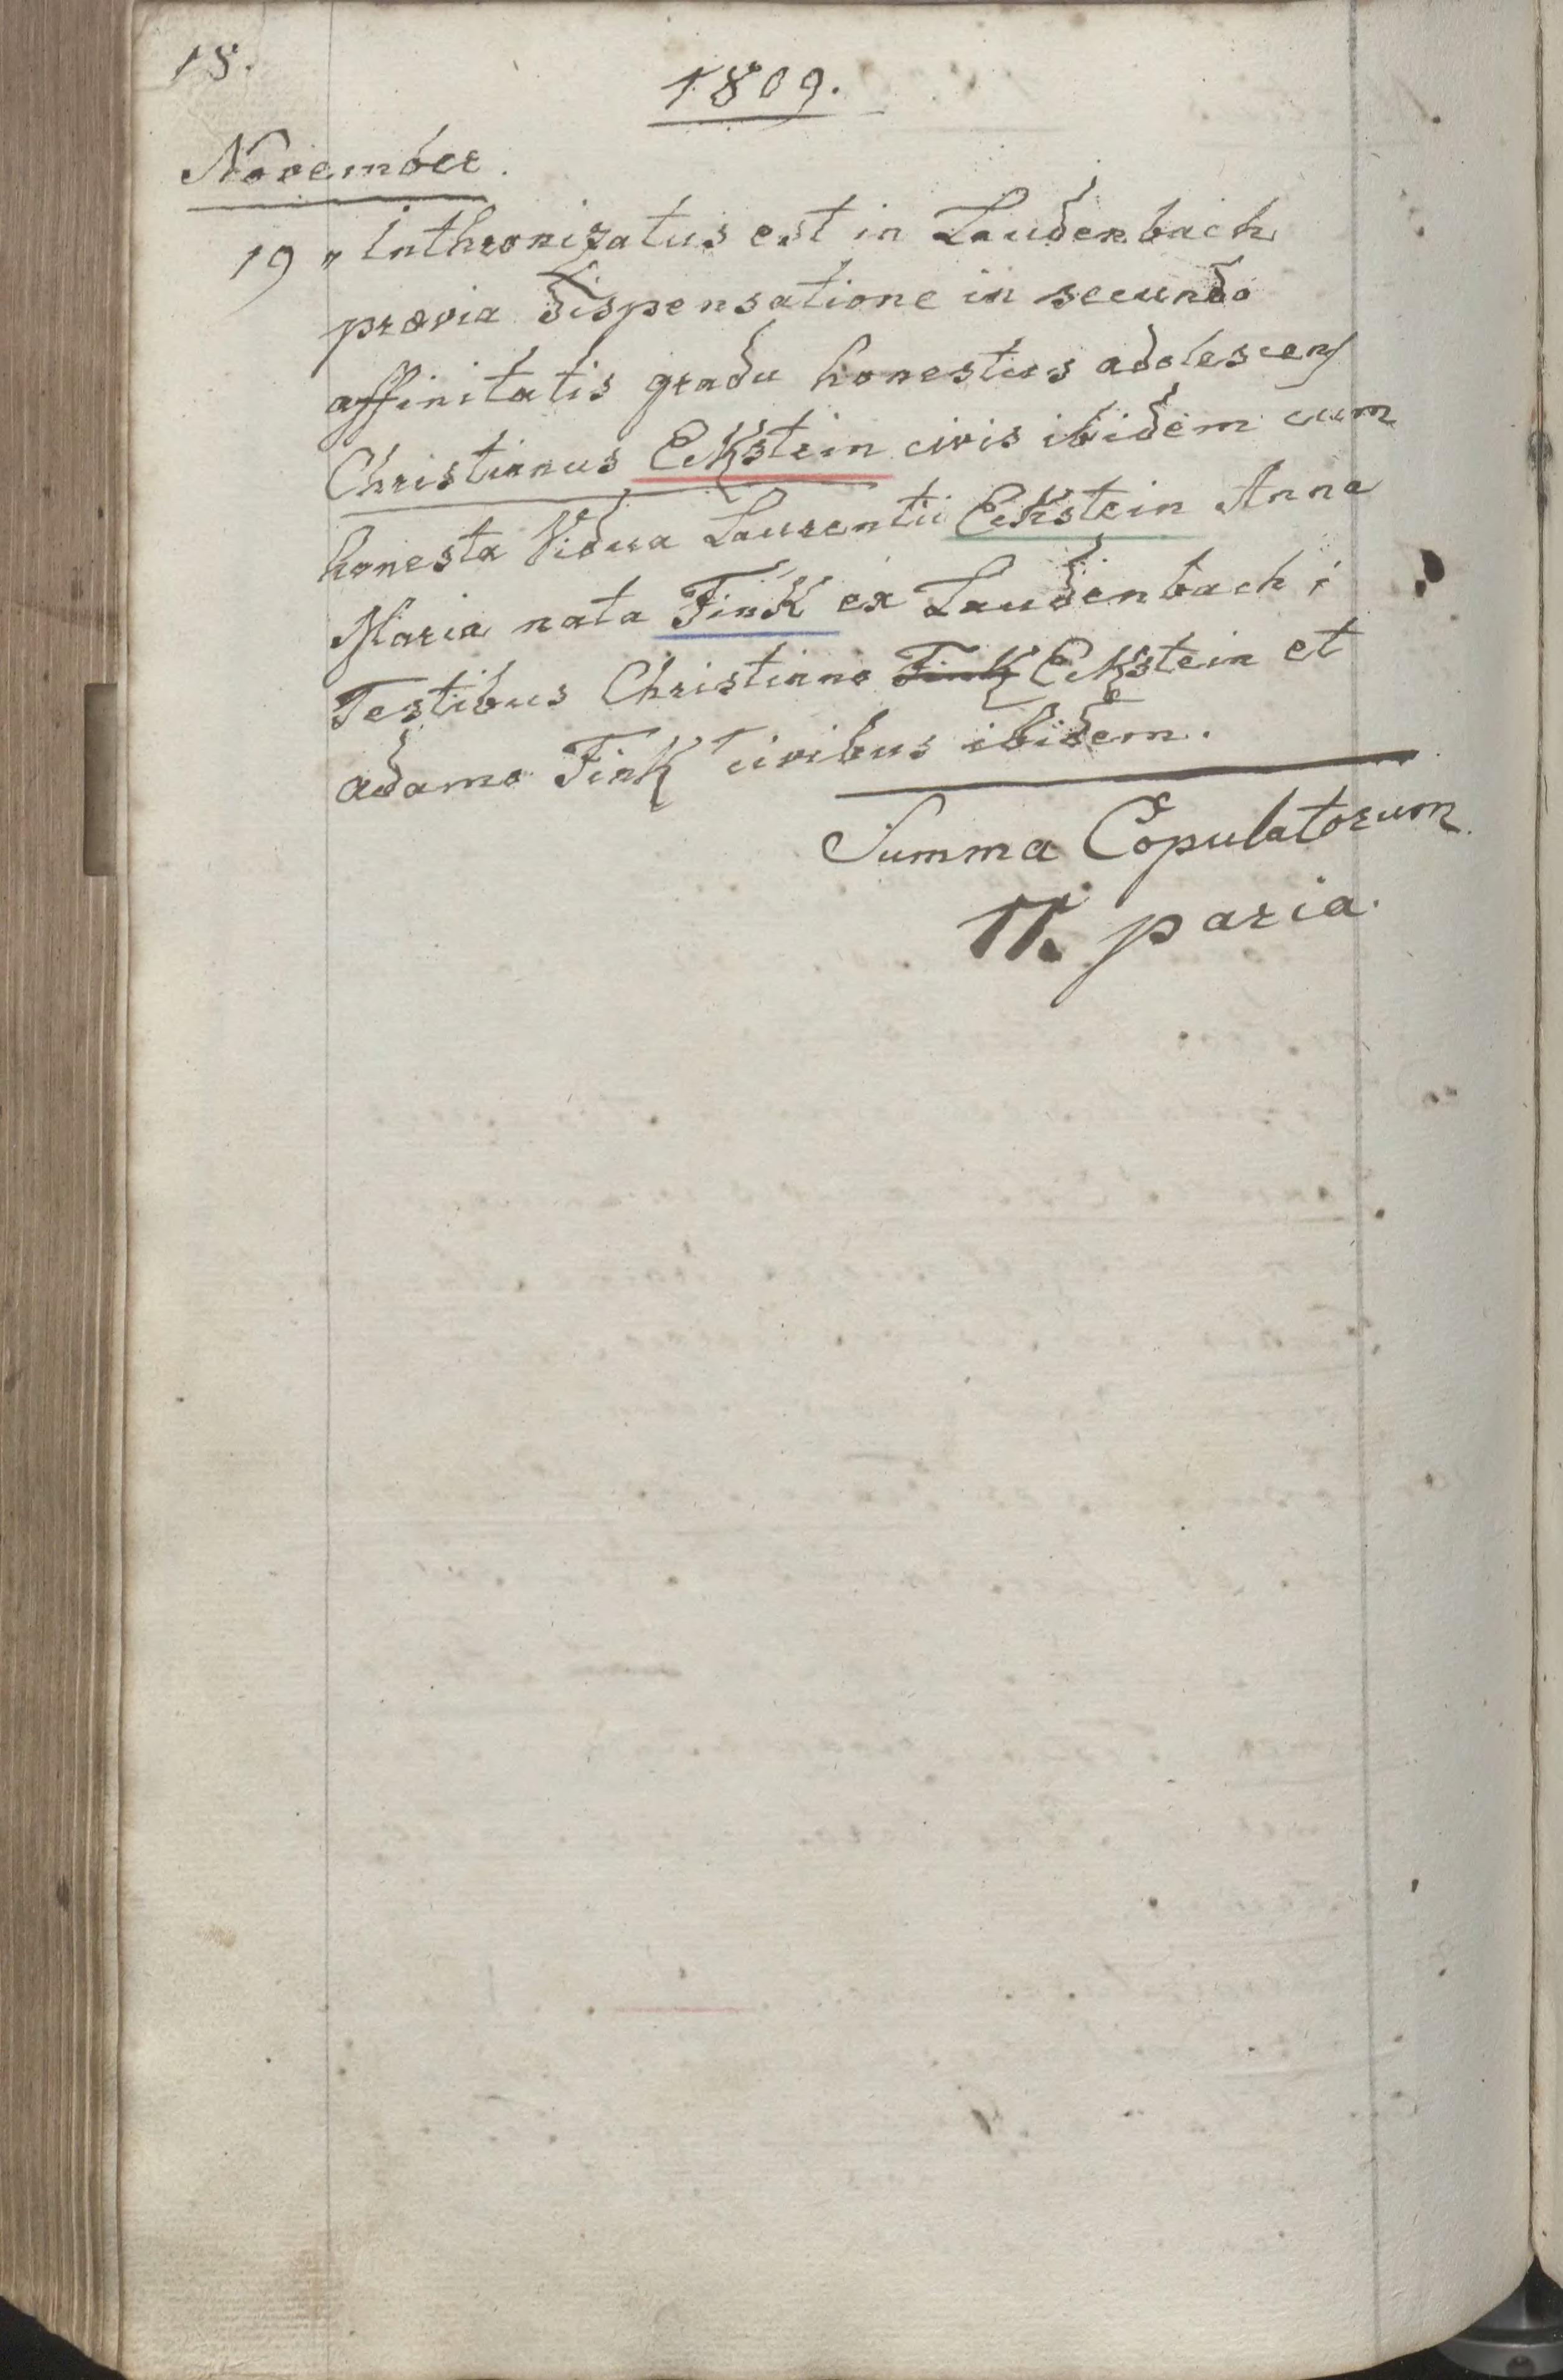 18.
1809.
November.
19 „ Inthronizatus est in Laudenbach
prævia dispensatione in secundo
affinitatis gradu honestus adolescens
Christianus Eckstein civis ibidem cum
honesta Vidua Laurentii Eckstein Anna
Maria nata Fink ex Laudenbach;
Testibus Christiano Fink Eckstein et
adamo Fink civibus ibidem.
Summa Copulatorum
11. paria.